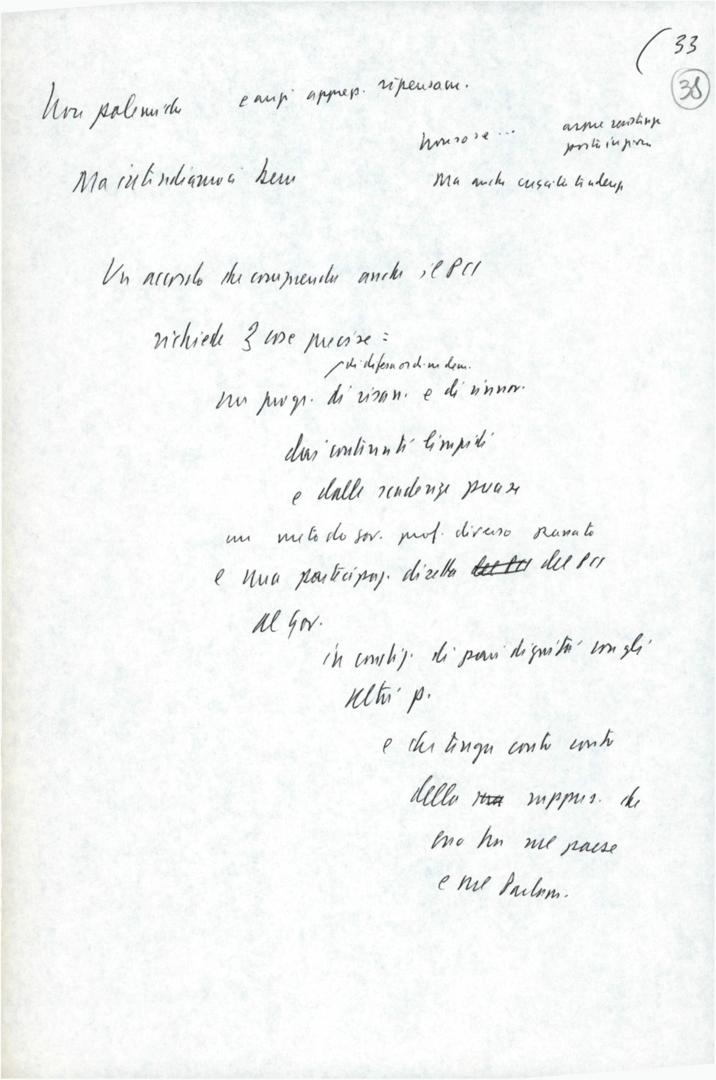 (33
38
Non polemiche e anzi apprez. ripensam.
non so se ...
Ma intendiamoci bene
Ma anche
Un accordo che comprenda anche il PCI
richiede 3 cose precise:
di difesa ord. dem.
un progr. di risan. e di rinnov.
dai contenuti limpidi
e dalle scadenze precise
un metodo gov. prof. diverso
e una partecipaz. diretta del PCI del PCI
al Gov.
in condiz. di pari dignità con gli
altri p.
e che tenga conto conto
della sua rappres. che
esso ha nel paese
e nel Parlam.